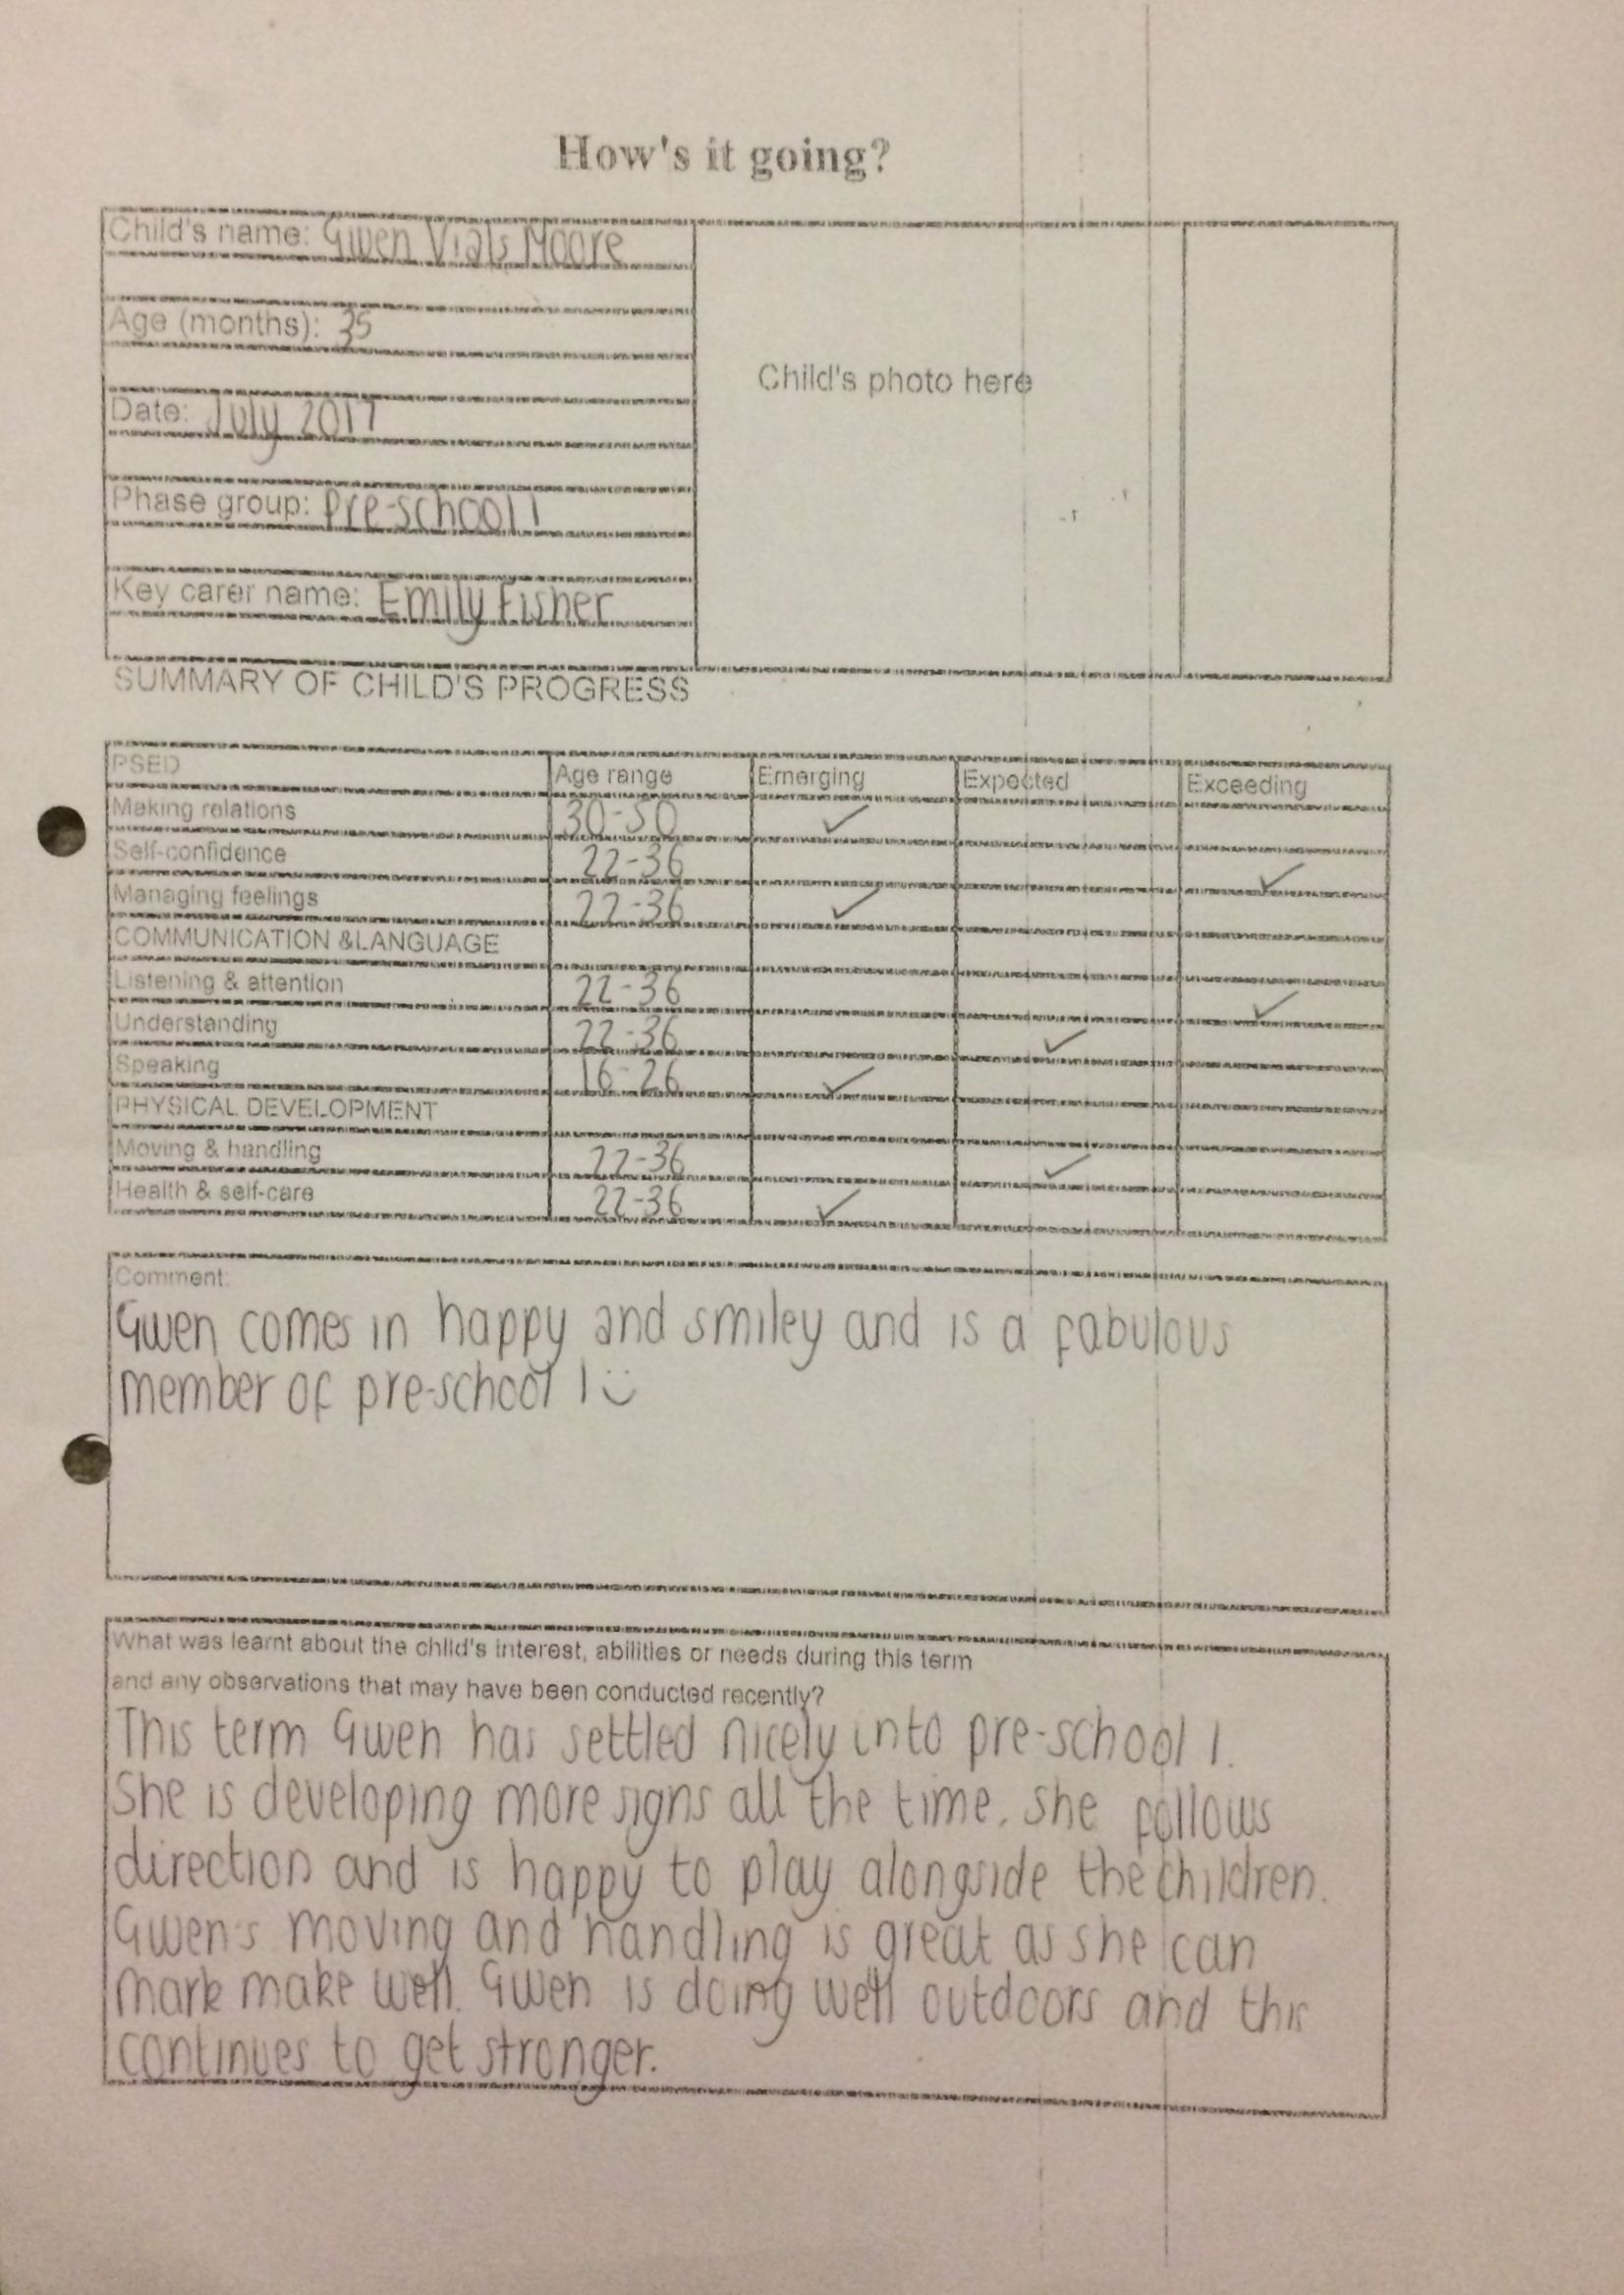 How's it going?
Child's name: Gwen Vials Moore
Age (months): 35
Child's photo here
Date: July 2017
Phase group: Pre-school 1
Key carer name: Emily Fisher
SUMMARY OF CHILD'S PROGRESS
PSED Age range Emerging Expected Exceeding
Making relations 30-50 ✓
Self-confidence 22-36 ✓
Managing feelings 22-36 ✓
COMMUNICATION &LANGUAGE
Listening & attention 22-36 ✓
Understanding 22-36 ✓
Speaking 16-26 ✓
PHYSICAL DEVELOPMENT
Moving & handling 22-36 ✓
Health & self-care 22-36 ✓
Comment:
Gwen comes in happy and smiley and is a fabulous
member of pre-school 1
What was learnt about the child's interest, abilities or needs during this term
and any observations that may have been conducted recently?
This term Gwen has settled nicely into pre-school 1.
She is developing more signs all the time. She follows
direction and is happy to play alongside the children.
Gwen's moving and handling is great as she can
mark make well. Gwen is doing well outdoors and this
continues to get stronger.